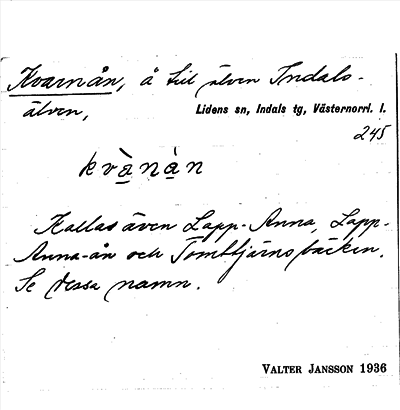 Kvarnån, å till älven Indals-
älven,
Lidens sn, Indals tg, Västernorrl. l.
245
kvà̱nà̱n
Kallas även Lapp-Anna, Lapp-
Anna-ån och Tomttjärnsbäcken.
Se dessa namn.
VALTER JANSSON 1936